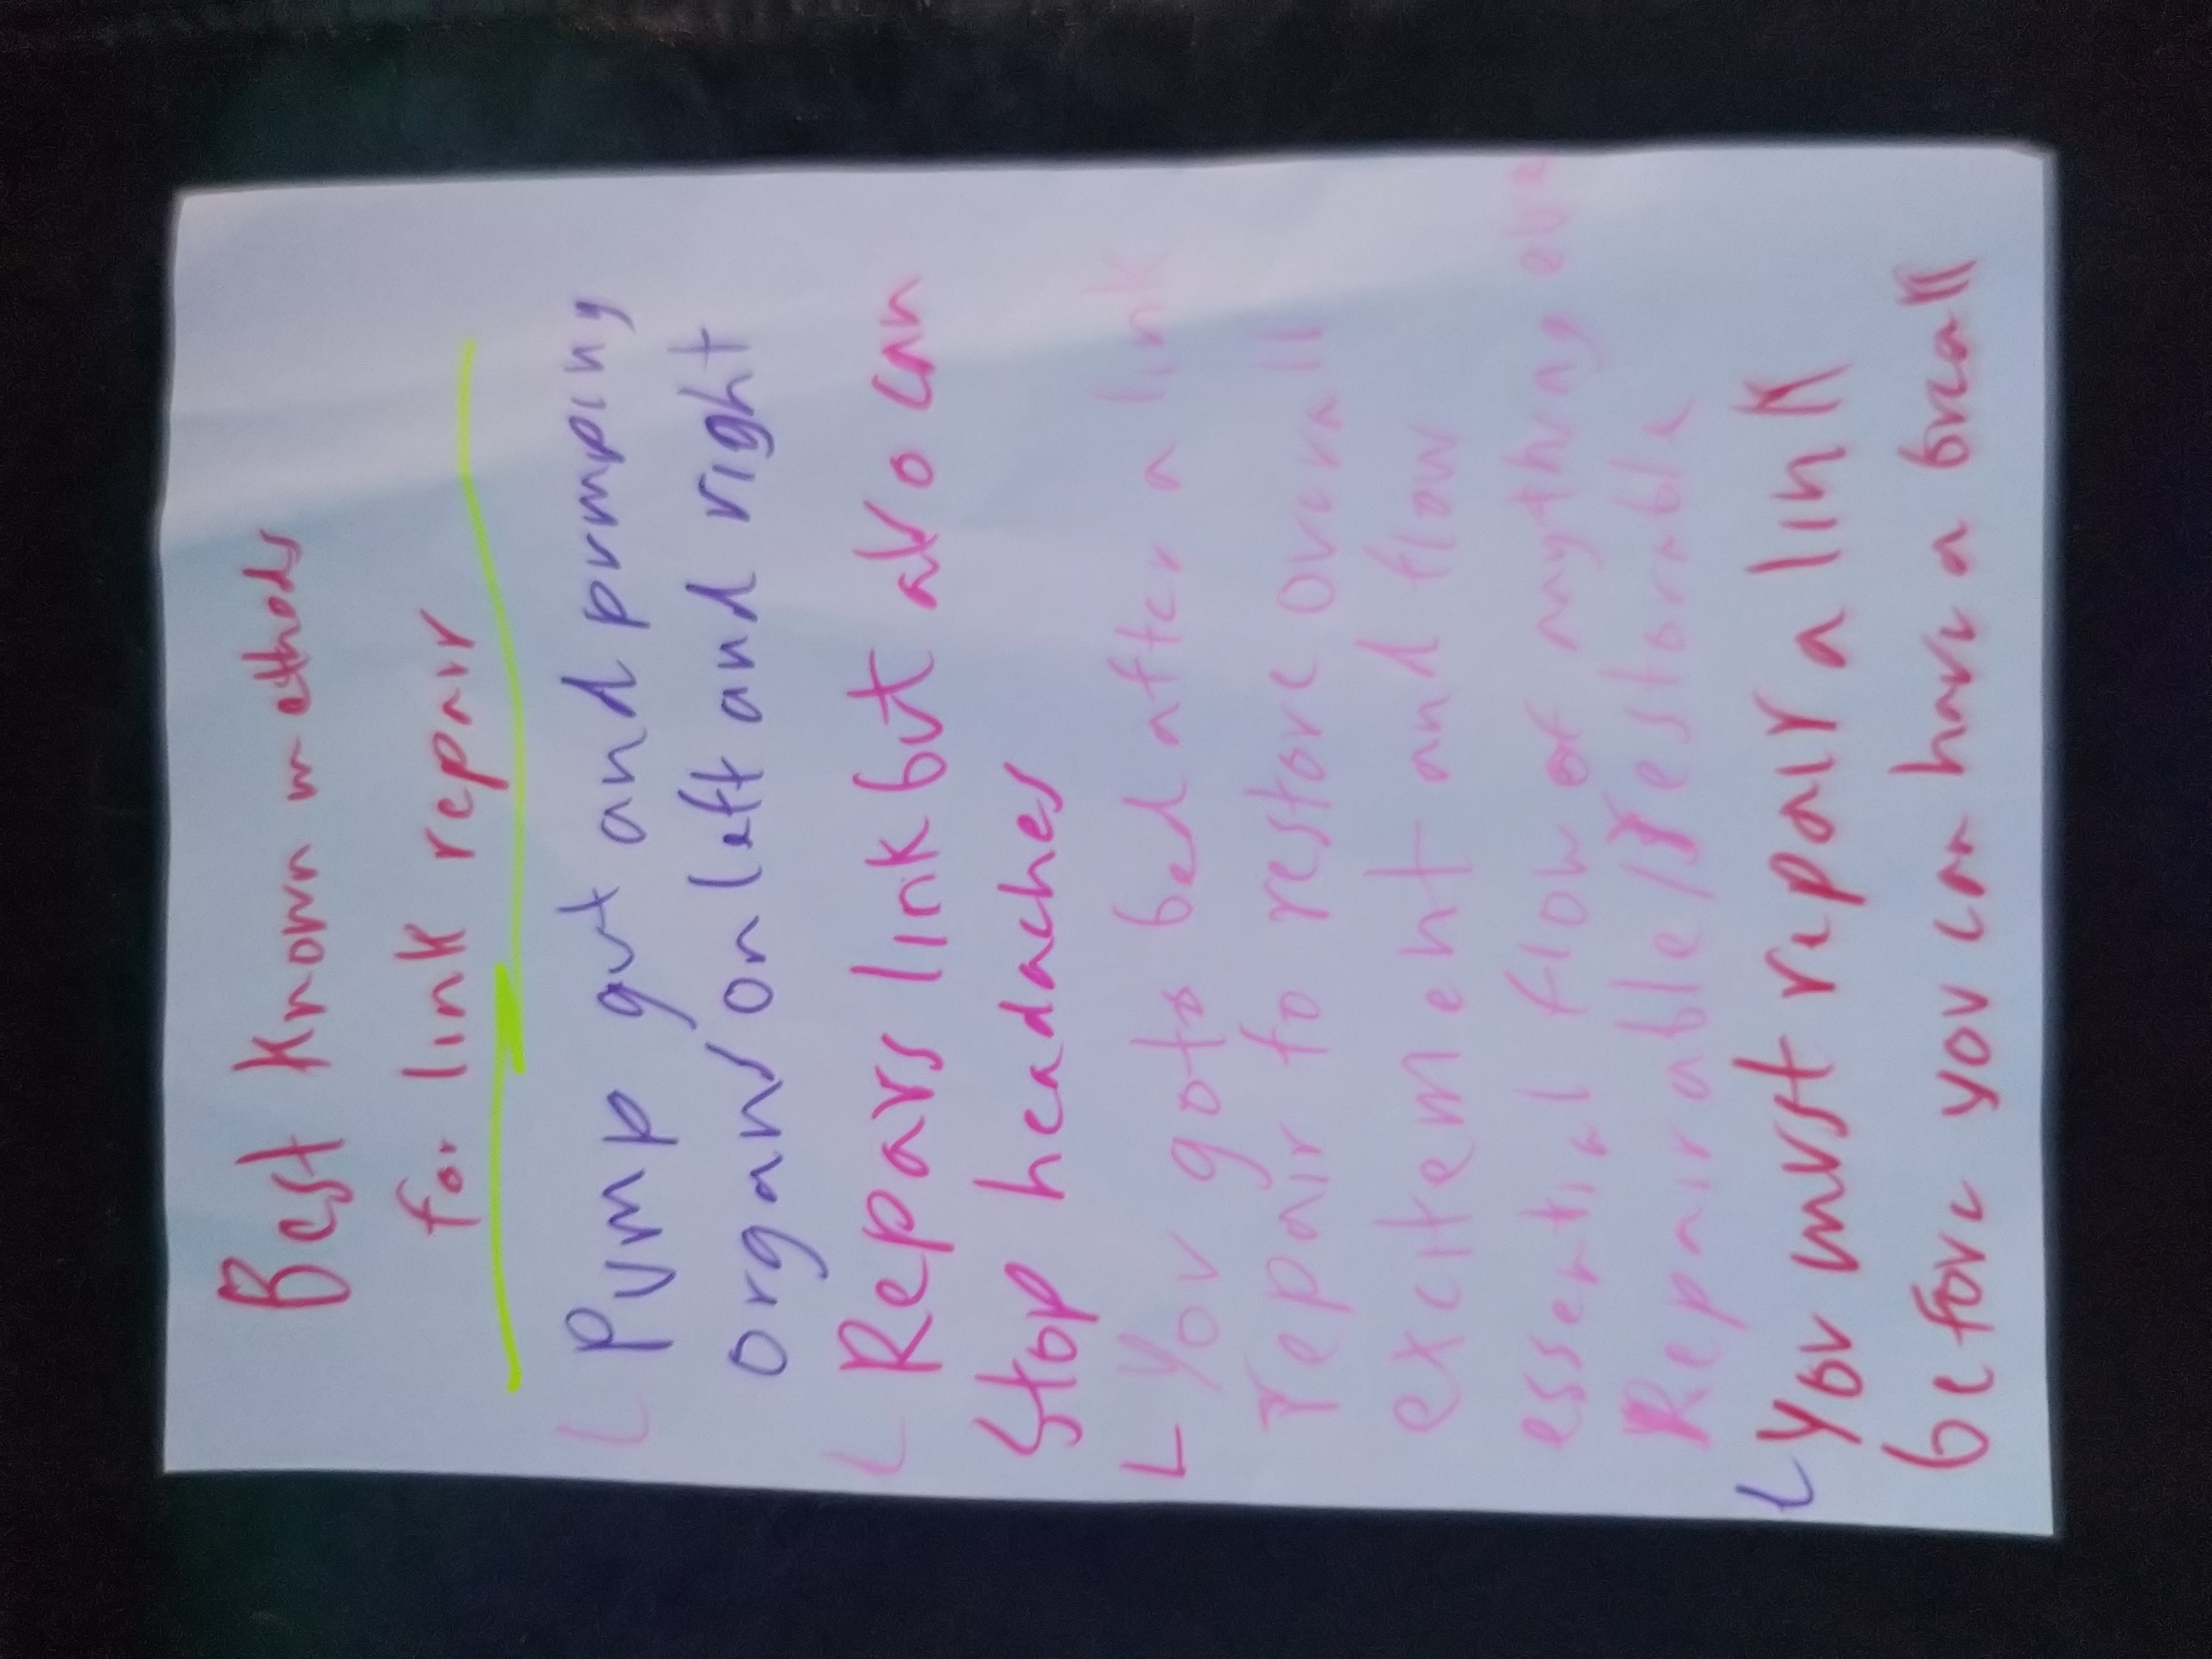 Best known methods
for link repair
L Pump gut and pumping
organs on left and right
L Repairs link but also can
stop headaches
L You gota bed after a link
repair to restore overall
excitement and flow
essential flow of anything ever
Repairable/restorable
L you must repair a link
before you can have a break